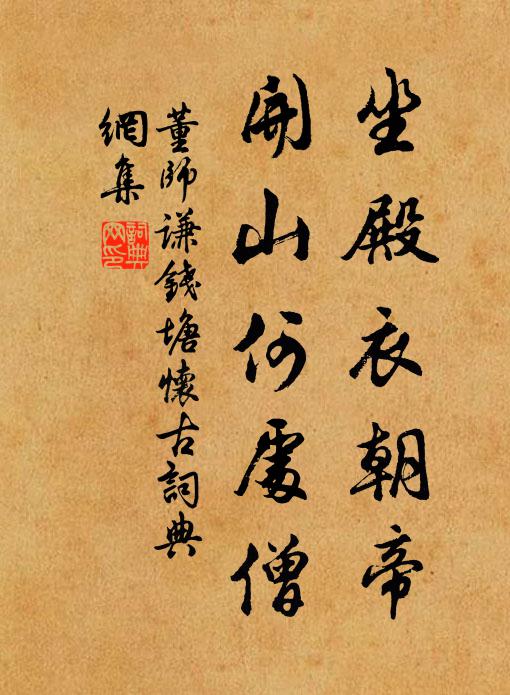 坐殿衣朝帝
開山何處僧
董師謙錢塘懷古詞典
網集
詞典網印